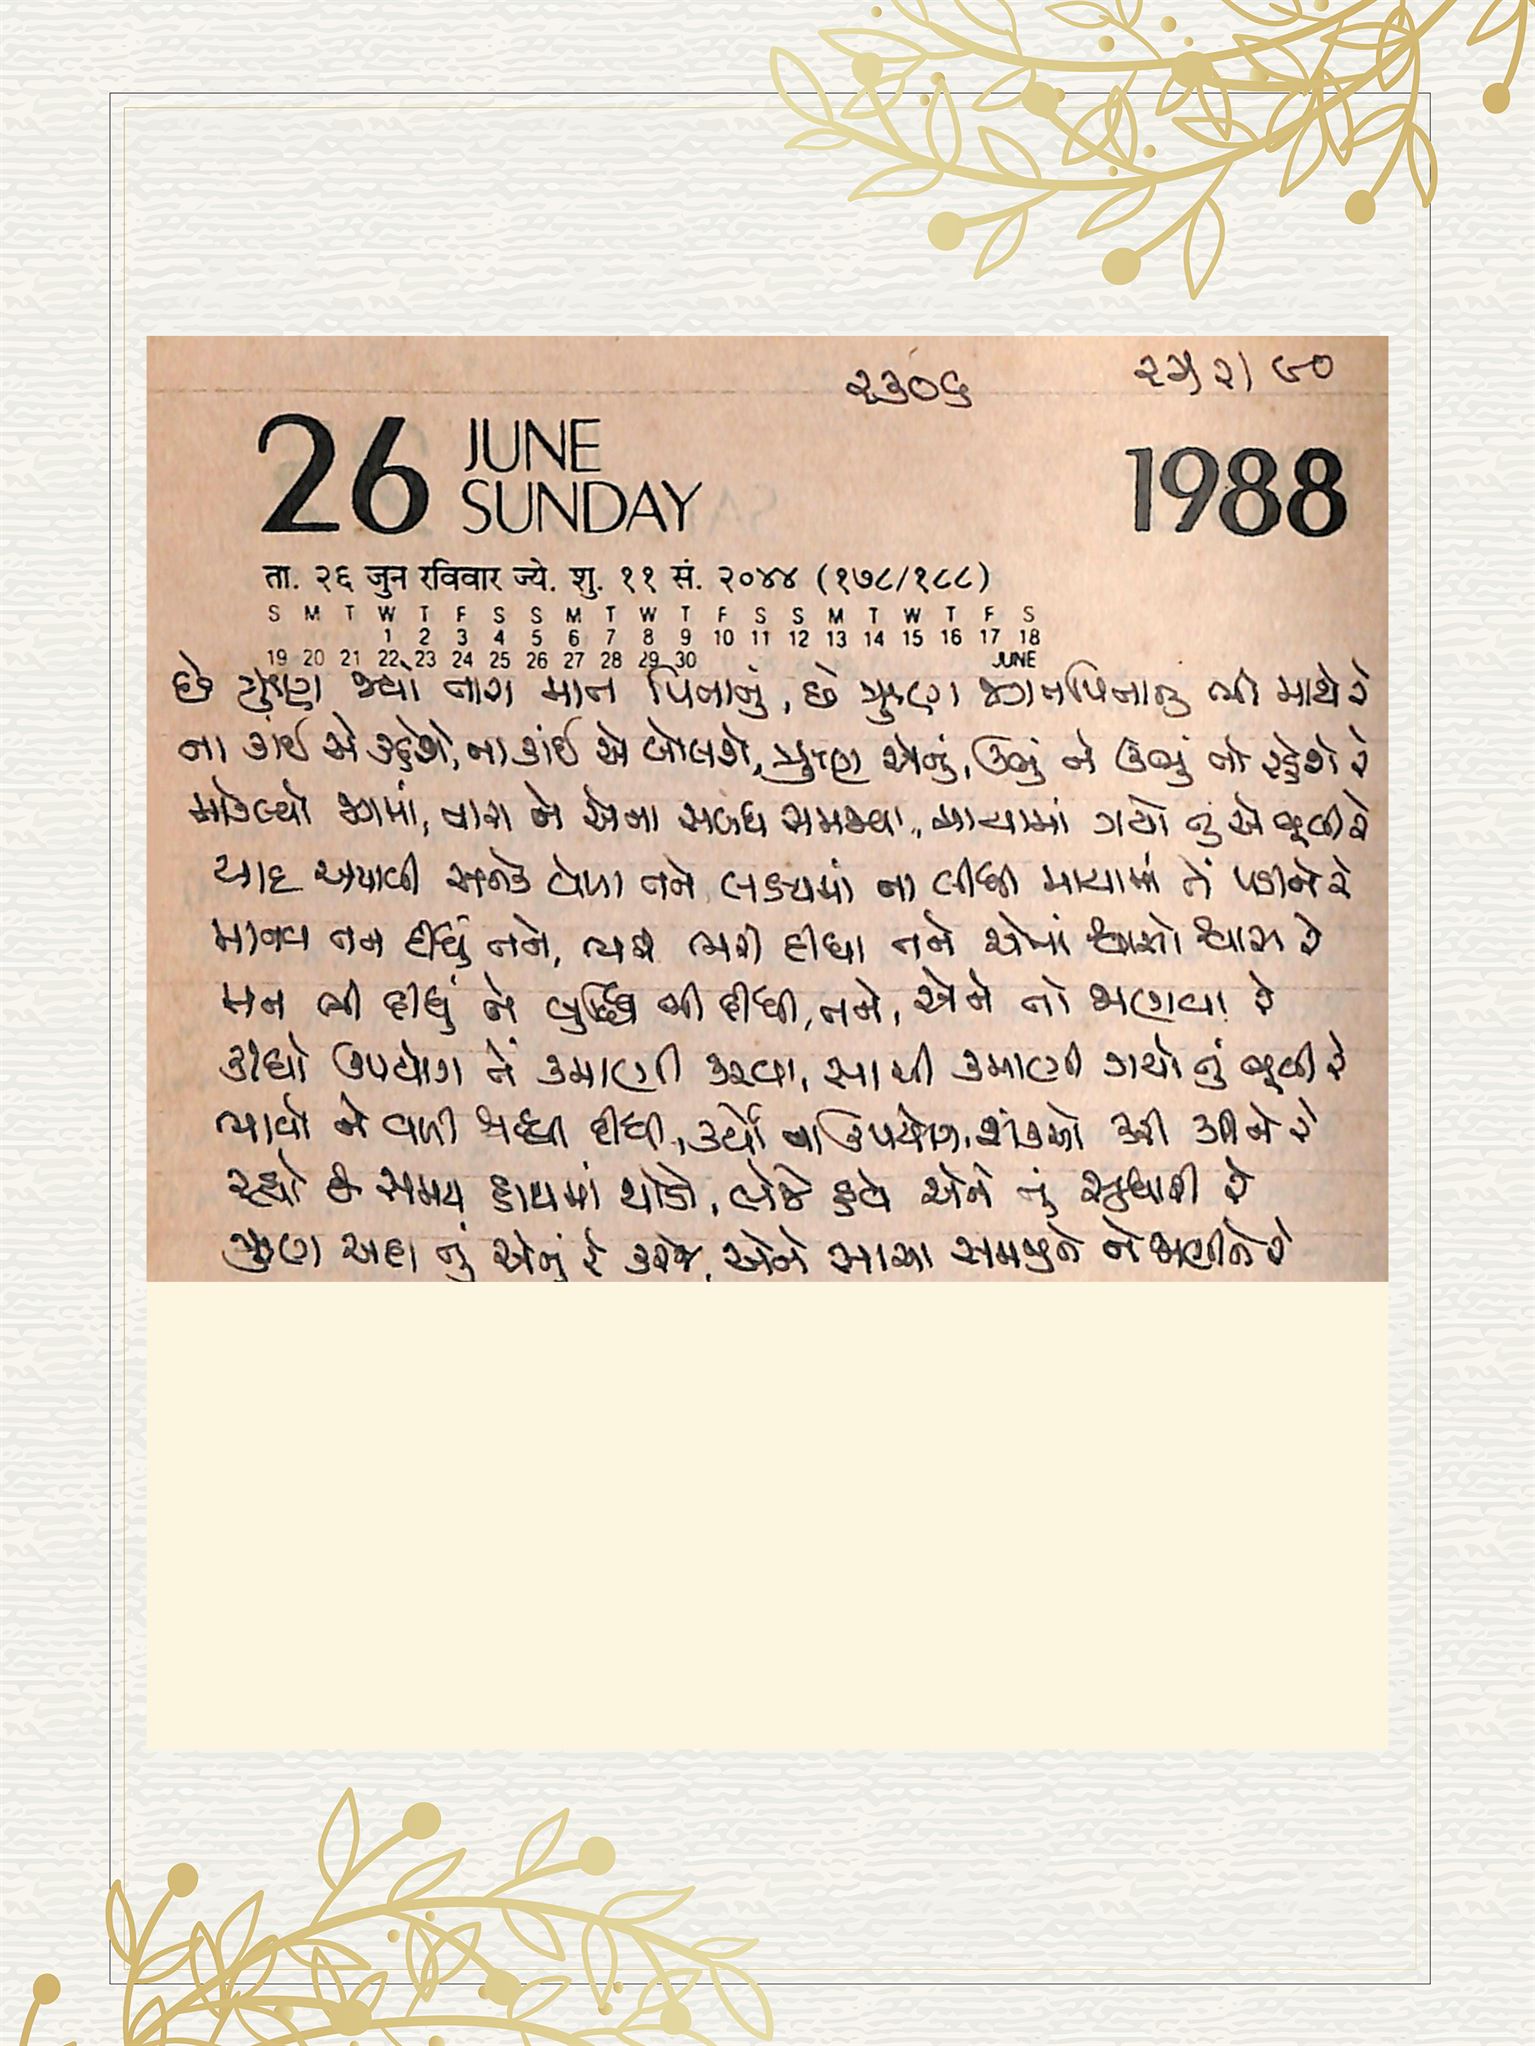 ૨૩૦૬ ૨૫૨) ૯૦
26 JUNE 1988
SUNDAY
ता. २६ जुन रविवार ज्ये. शु. ११ सं. २०४४ (१७८/१८८)
S M T W T F S S M T W T F S S M T W T F S
1 2 3 4 5 6 7 8 9 10 11 12 13 14 15 16 17 18
19 20 21 22 23 24 25 26 27 28 29 30 JUNE
છે ઋણ જ્યાં તારા માત પિતાનું, છે ઋણ જગતપિતાનું ભી માથે રે
ના કાંઈ એ કહેશે, ના કાંઈ એ બોલશે, ઋણ એનું, ઊભું ને ઊભું તો રહેશે રે
મોકલ્યો જગમાં, તારા ને એના સબંધ સમજવા, માયામાં ગયો તું એ ભૂલી રે
યાદ અપાવી અનેક વેળા તને લક્ષ્યમાં ના લીધી માયામાં તેં પડીને રે
માનવ તન દીધું તને, ભરી દીધા તને એમાં શ્વાસો શ્વાસ રે
મન ભી દીધું ને બુદ્ધિ ભી દીધી, તને, એને તો જાણવા રે
કીધો ઉપયોગ તેં કમાણી કરવા, સાચી કમાણી ગયો તું ભૂલી રે
ભાવો ને વળી શ્રદ્ધા દીધી, કર્યો ના ઉપયોગ, શંકાઓ કરી કરીને રે
રહ્યો છે સમય હાથમાં થોડો, લેજે હવે એને તું સુધારી રે
ઋણ અદા તું એનું રે કરજે, એને સાચા સમજીને ને જાણીને રે